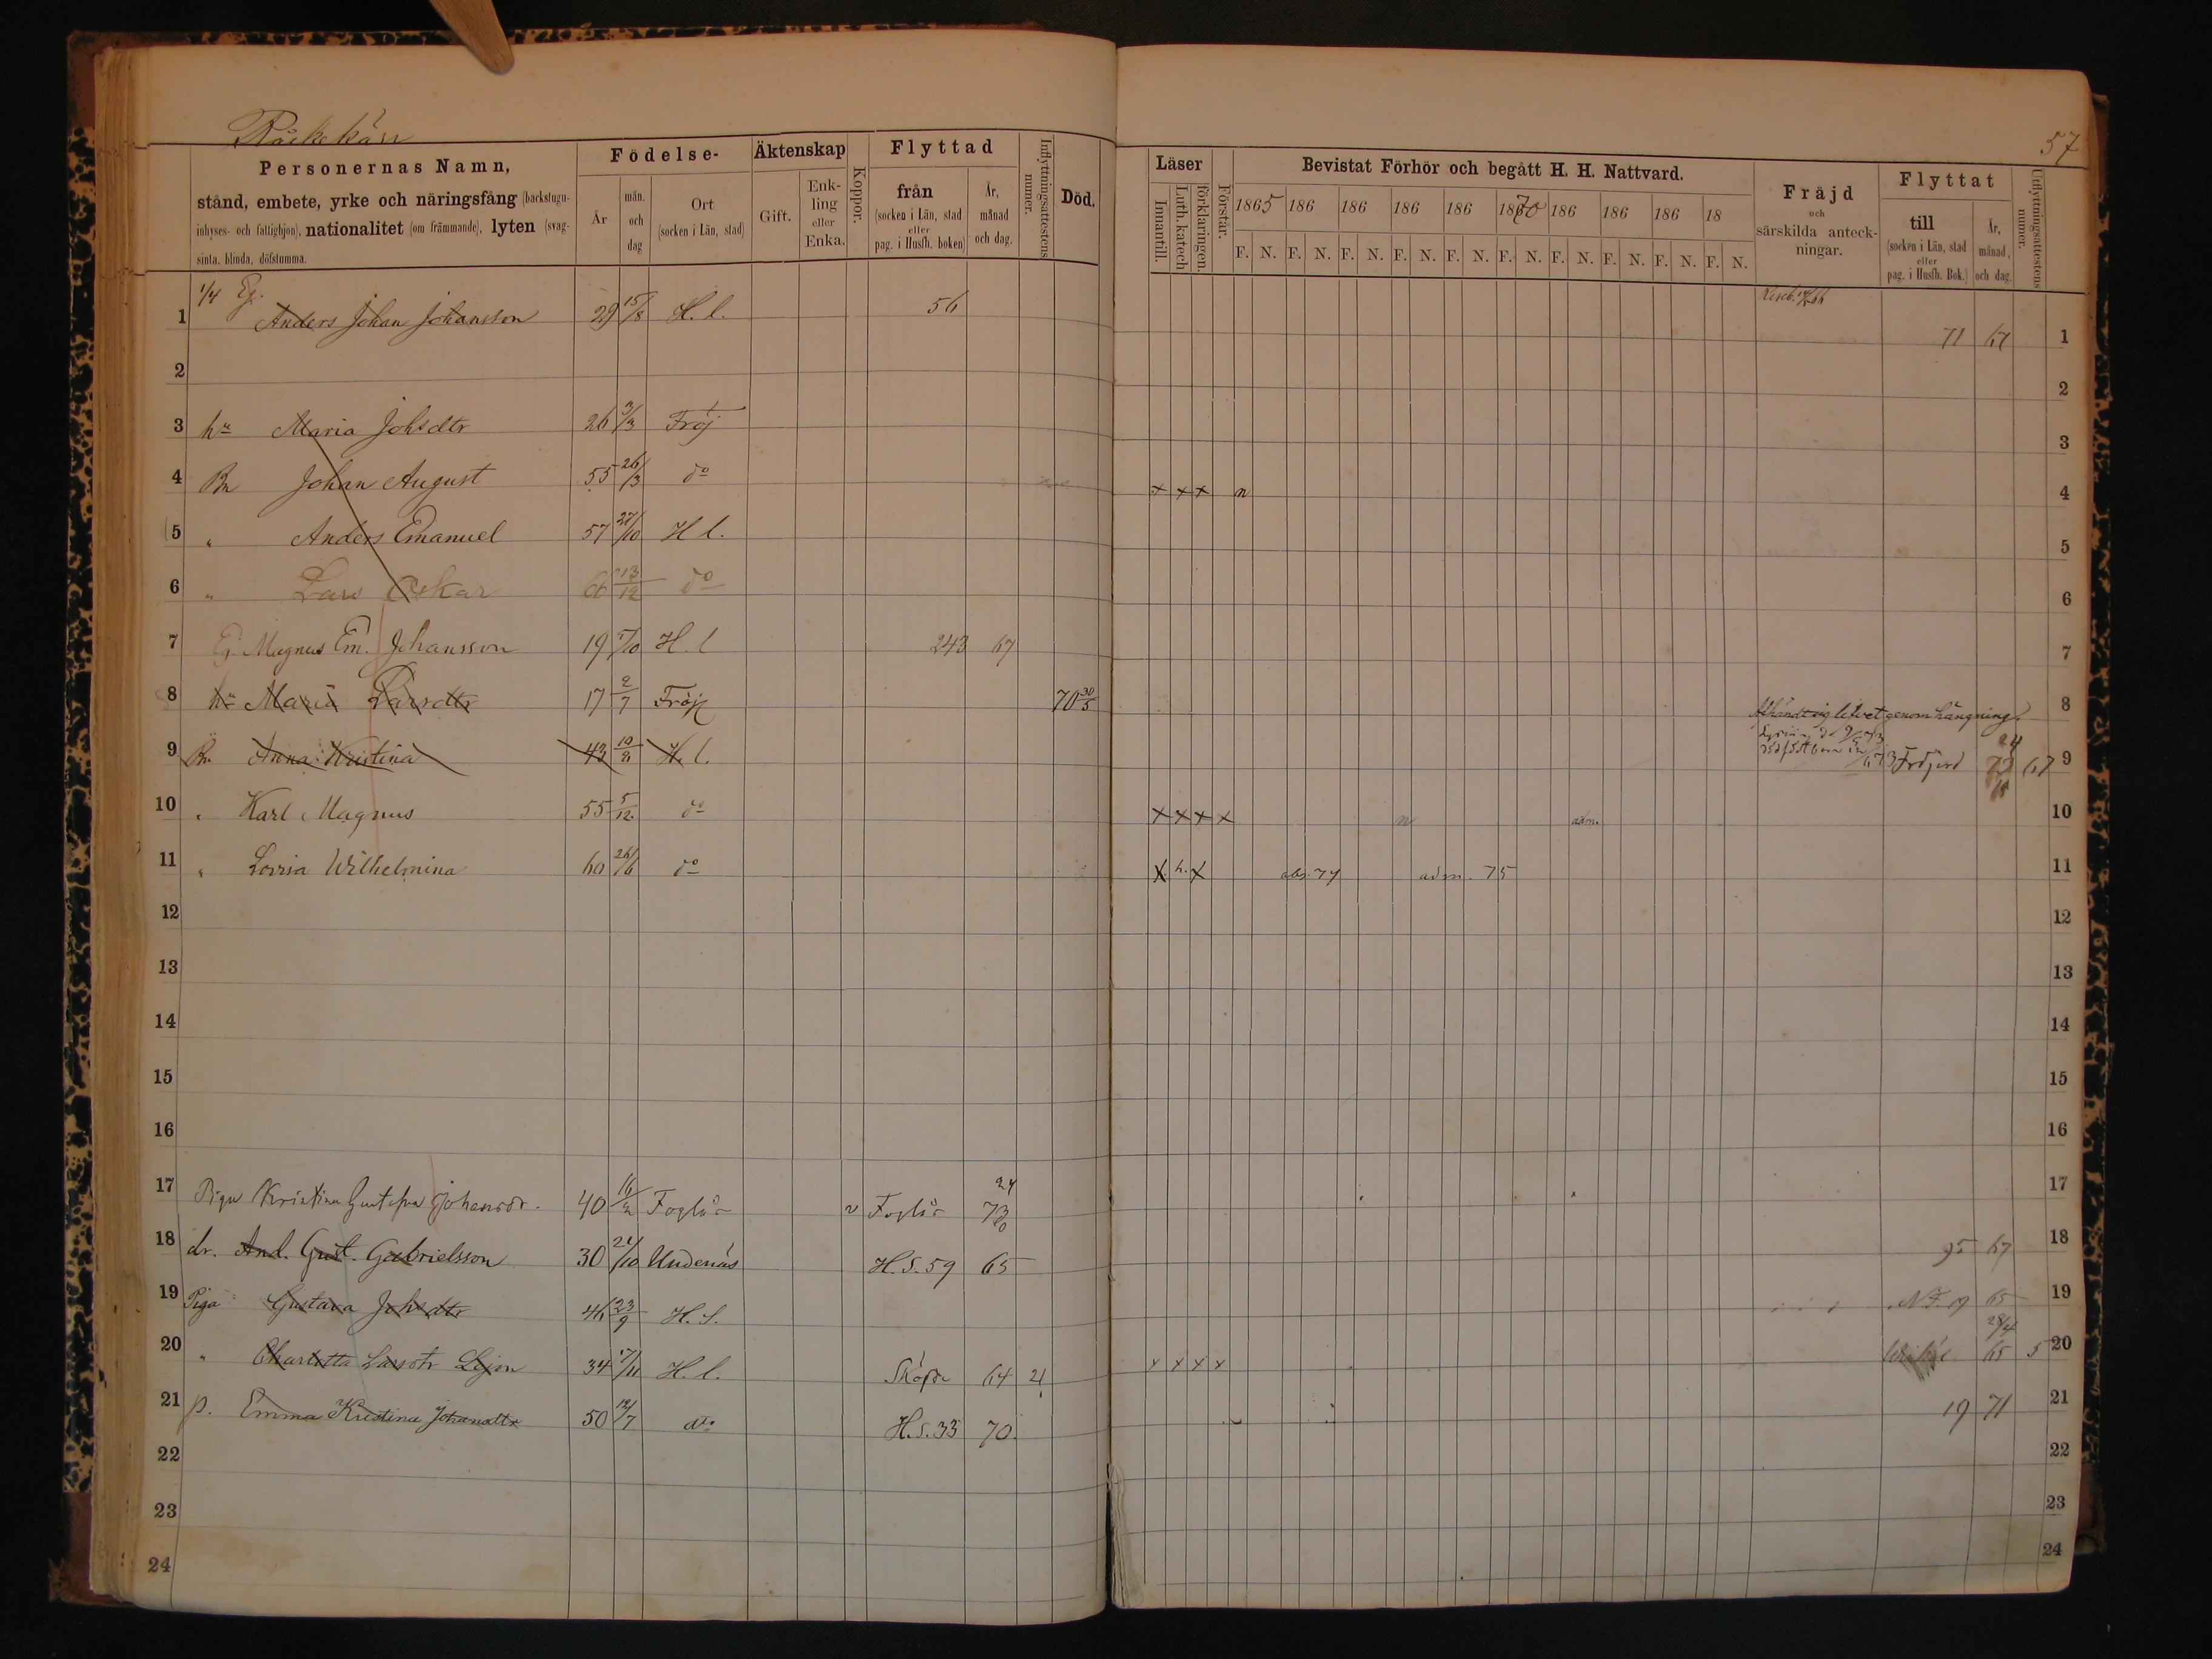 57
Personernas Namn,
stånd, embete, yrke och näringsfång (backstugu-
inhyses- och fattighjon), nationalitet (om främmande), lyten (svag-
sinta, blinda, döfstumma.
Födelse-
År
mån. och dag
Ort
(socken i Län, stad)
Äktenskap
Gift.
Enk-
ling
eller
Enka.
Koppor.
Flyttad
från
(socken i Län, stad
eller
pag. i Husfh. boken)
År,
månad
och dag.
Inflyttningsattestens nummer.
Död.
Läser
Innantill.
Luth. katech
förklaringen.
Förstår.
Bevistat Förhör och begått H. H. Nattvard.
1865 186 186 186 186 1870 186 186 186 18
F. N. F. N. F. N. F. N. F. N. F. N. F. N. F. N. F. N. F. N.
Fräjd
och
särskilda anteck-
ningar.
Flyttat
till
(socken i Län, stad
eller
pag. i Husfh. Bok.)
År,
månad,
och dag.
Utflyttningsattestens nummer.
1/4 Eg.
1 Anders Johan Johansson 29 15/8 H. l. 56 71 67 1
2 2
3 hu Maria Johsdtr 26 3/3 Fröj 3
4 Bn Johan August 55 26/3 do x x x n 4
5 " Anders Emanuel 57 27/10 H l. 5
6 " Lars Oskar 66 13/12 do 6
7 Eg. Magnus Em. Johansson 19 /10 H. l 243 67 7
8 hu Maria Larsdtr 17 2/7 Fröj 70 30/5 Afhändt sig lifvet genom hängning. 8
9 Bn Anna Kristina 43 10/8 H. l. Fröjerd 24 73 67 9
10 " Karl Magnus 55 5/12 do x x x x n adm. 10
11 " Lovisa Wilhelmina 60 26/6 do x h. x abs. 74 adm. 75 11
12 12
13 13
14 14
15 15
16 16
17 Piga Kristina Gustafva Johansdr. 40 16/2 Foglås v Foglås 24 73 17
18 dr. And. Gust. Gabrielsson 30 21/10 Undenäs H. S. 59 65 95 67 18
19 Piga Gustava Johsdtr 46 23/9 H. S. N. F. 19 65 19
20 " Charlotta Larsdtr Lejon 34 17/11 H. l. Sköfde 64 21 x x x x 28/4 65 5 20
21 p. Emma Kristina Johansdtr 50 12/7 do H. S. 33 70. 19 71 21
22 22
23 23
24 24